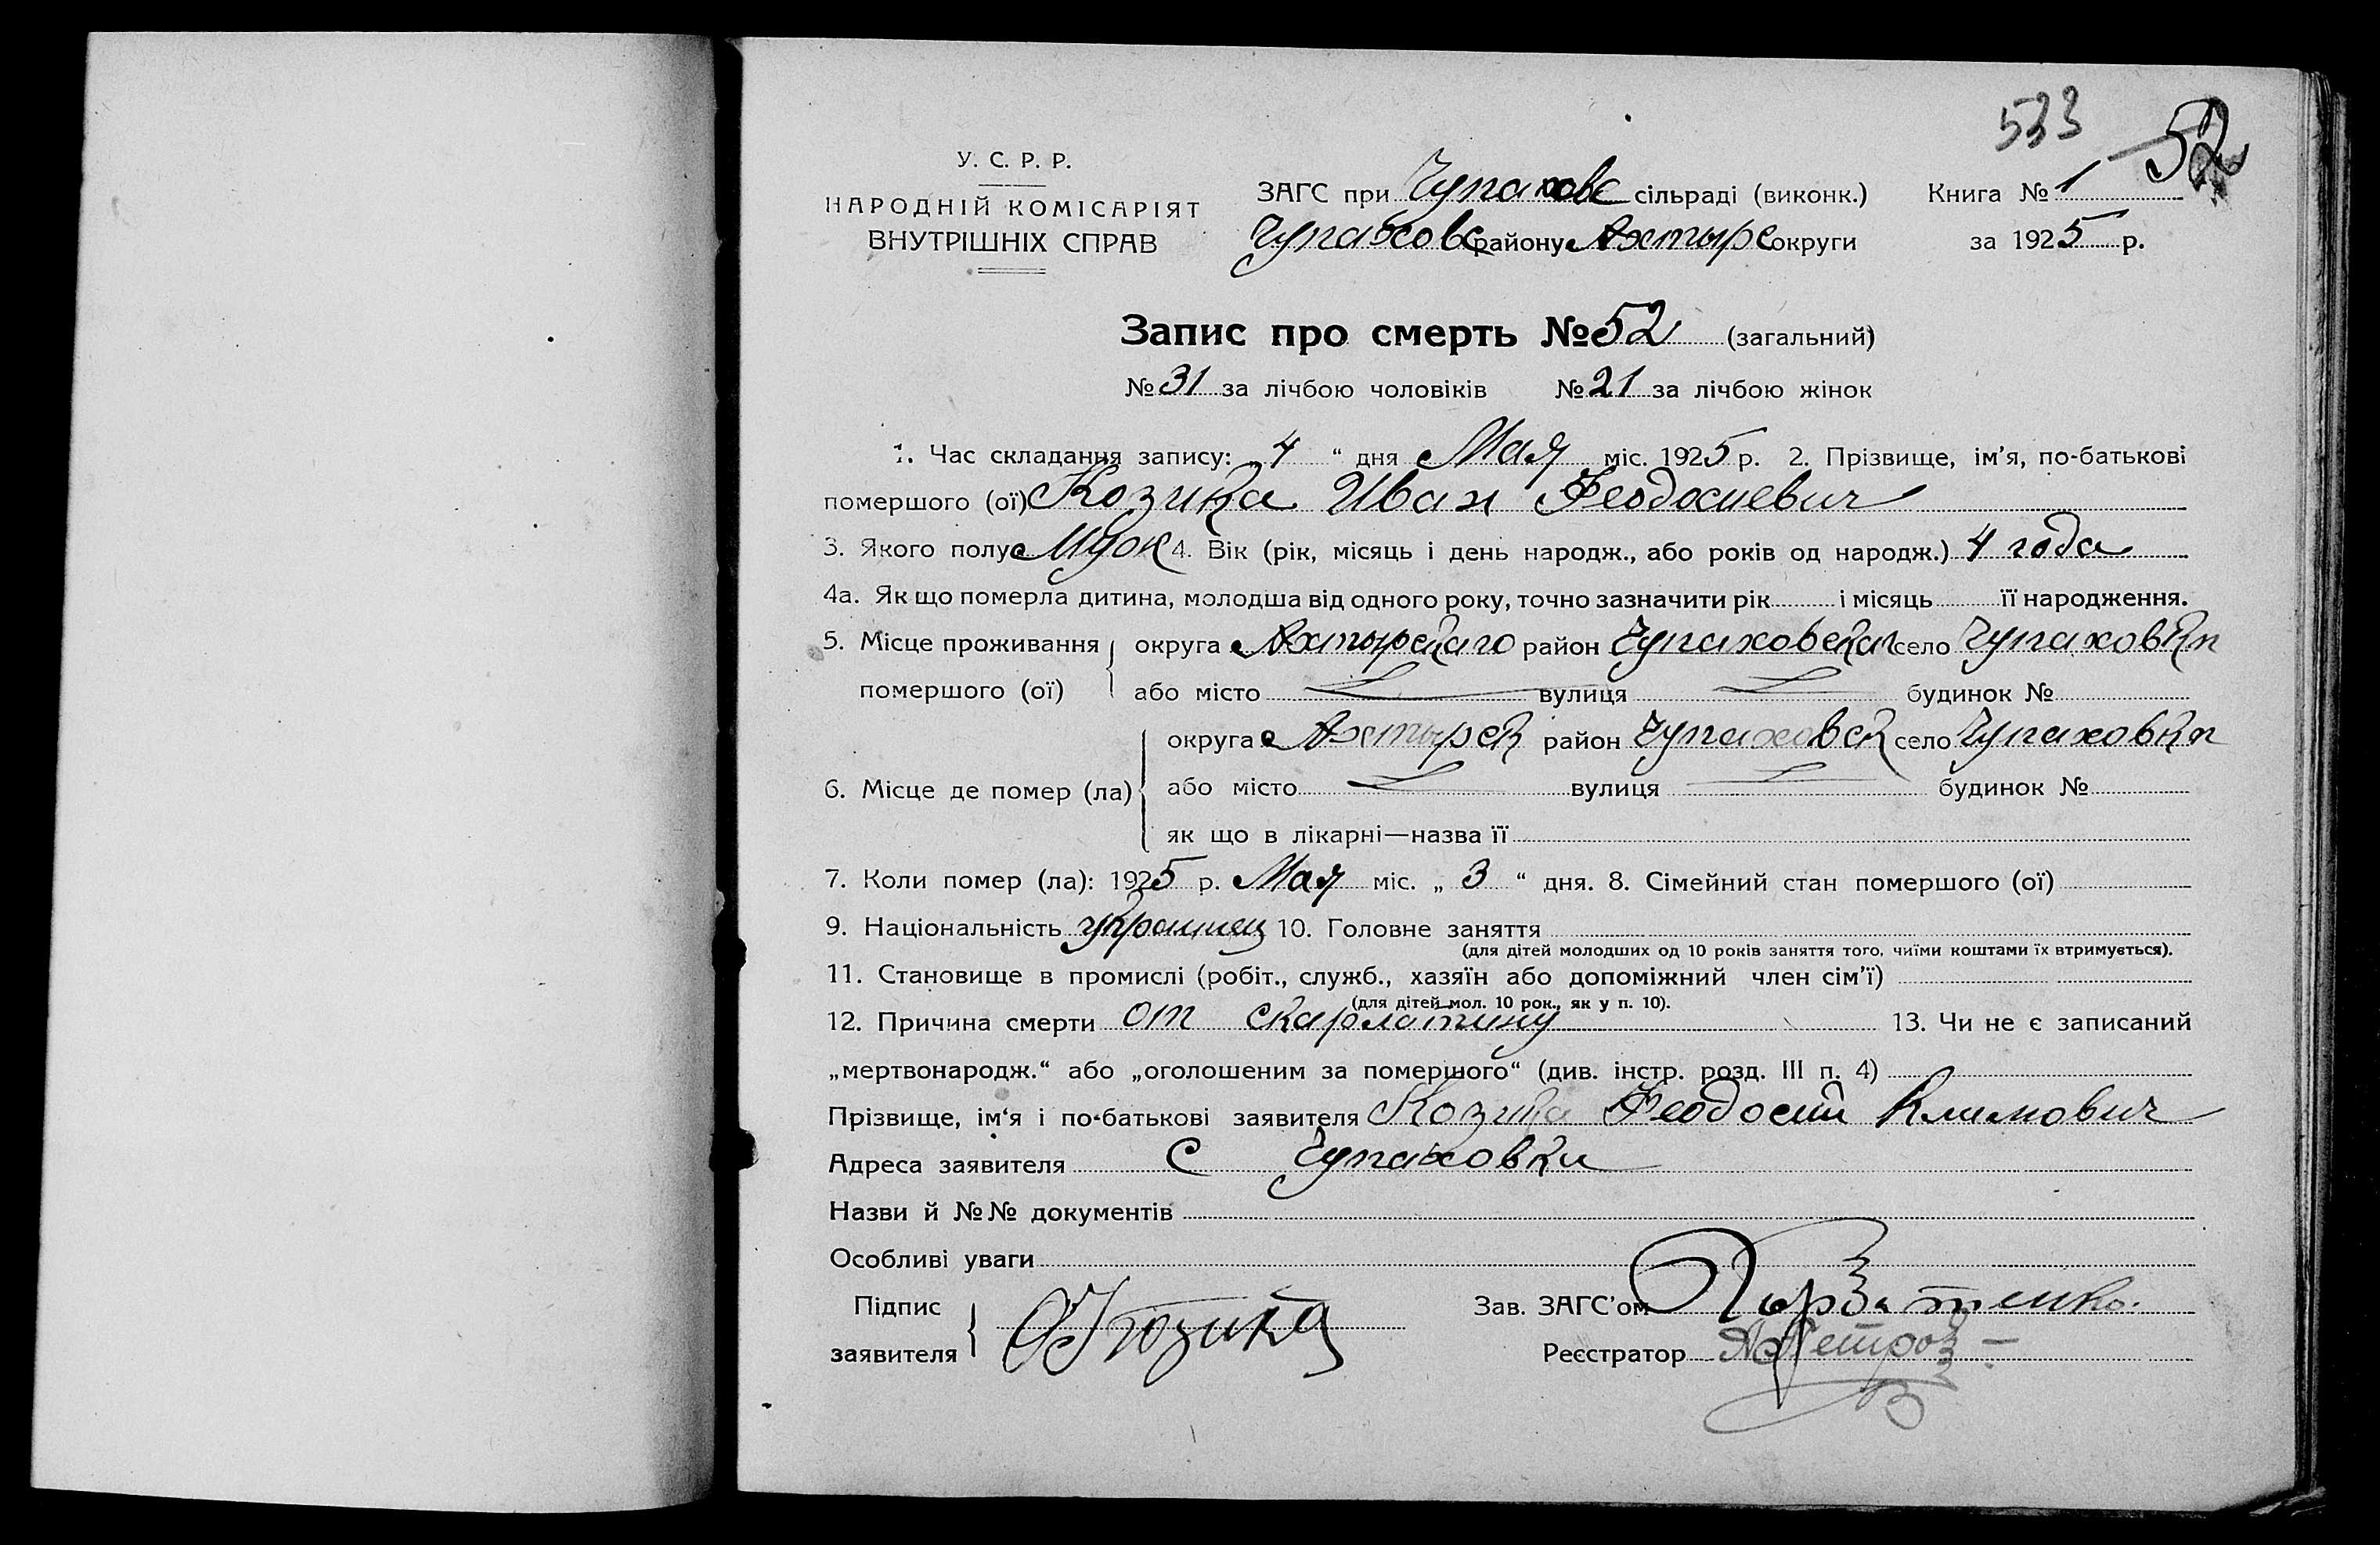 533 52
У. С. Р. Р.
НАРОДНІЙ КОМІСАРІЯТ
ВНУТРІШНІХ СПРАВ
ЗАГС при Чупаховс сільраді (виконк.) Книга № 1
Чупаховс району Ахтырс округи за 1925 р.
Запис про смерть № 52 (загальний)
№ 31 за лічбою чоловіків № 21 за лічбою жінок
1. Час складання запису: 4 “ дня Мая міс. 1925 р. 2. Прізвище, ім’я, по-батькові
помершого (ої) Козика Иван Феодосиевич
3. Якого полу Муж 4. Вік (рік, місяць і день народж., або років од народж.) 4 года
4а. Як що померла дитина, молодша від одного року, точно зазначити рік і місяць її народження.
5. Місце проживання округа Ахтырскаго район Чупаховскаг село Чупаховкп
помершого (ої) або місто вулиця будинок №
округа Ахтырск район Чупаховск село Чупаховкп
6. Місце де помер (ла) або місто вулиця будинок №
як що в лікарні—назва її
7. Коли помер (ла): 1925 р. Мая міс. „ 3 “ дня. 8. Сімейний стан помершого (ої)
9. Національність украинец 10. Головне заняття
(для дітей молодших од 10 років заняття того, чиїми коштами їх втримується).
11. Становище в промислі (робіт., служб., хазяїн або допоміжний член сім’ї)
(для дітей мол. 10 рок., як у п. 10).
12. Причина смерти от скарлатину 13. Чи не є записаний
„мертвонародж.“ або „оголошеним за помершого“ (див. інстр. розд. III п. 4)
Прізвище, ім‘я і по-батькові заявителя Козика Феодосий Климович
Адреса заявителя С Чупаховки
Назви й №№ документів
Особливі уваги
Підпис Зав. ЗАГС’ом
заявителя Ф Козика Реєстратор